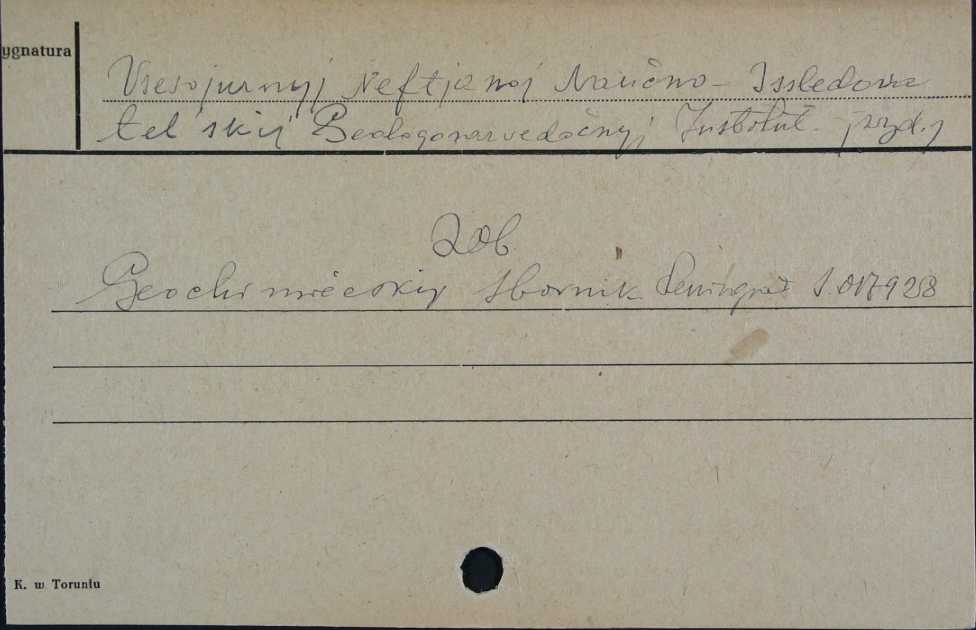 ygnatura
Vsesojuznyj Neftjanoj Naučno-Issledova
tel'skij Geologorazvedočnyj Institut. [wyd.]
Zob
Geochimičeskij Sbornik Leningrad S.017928
K. w Toruniu